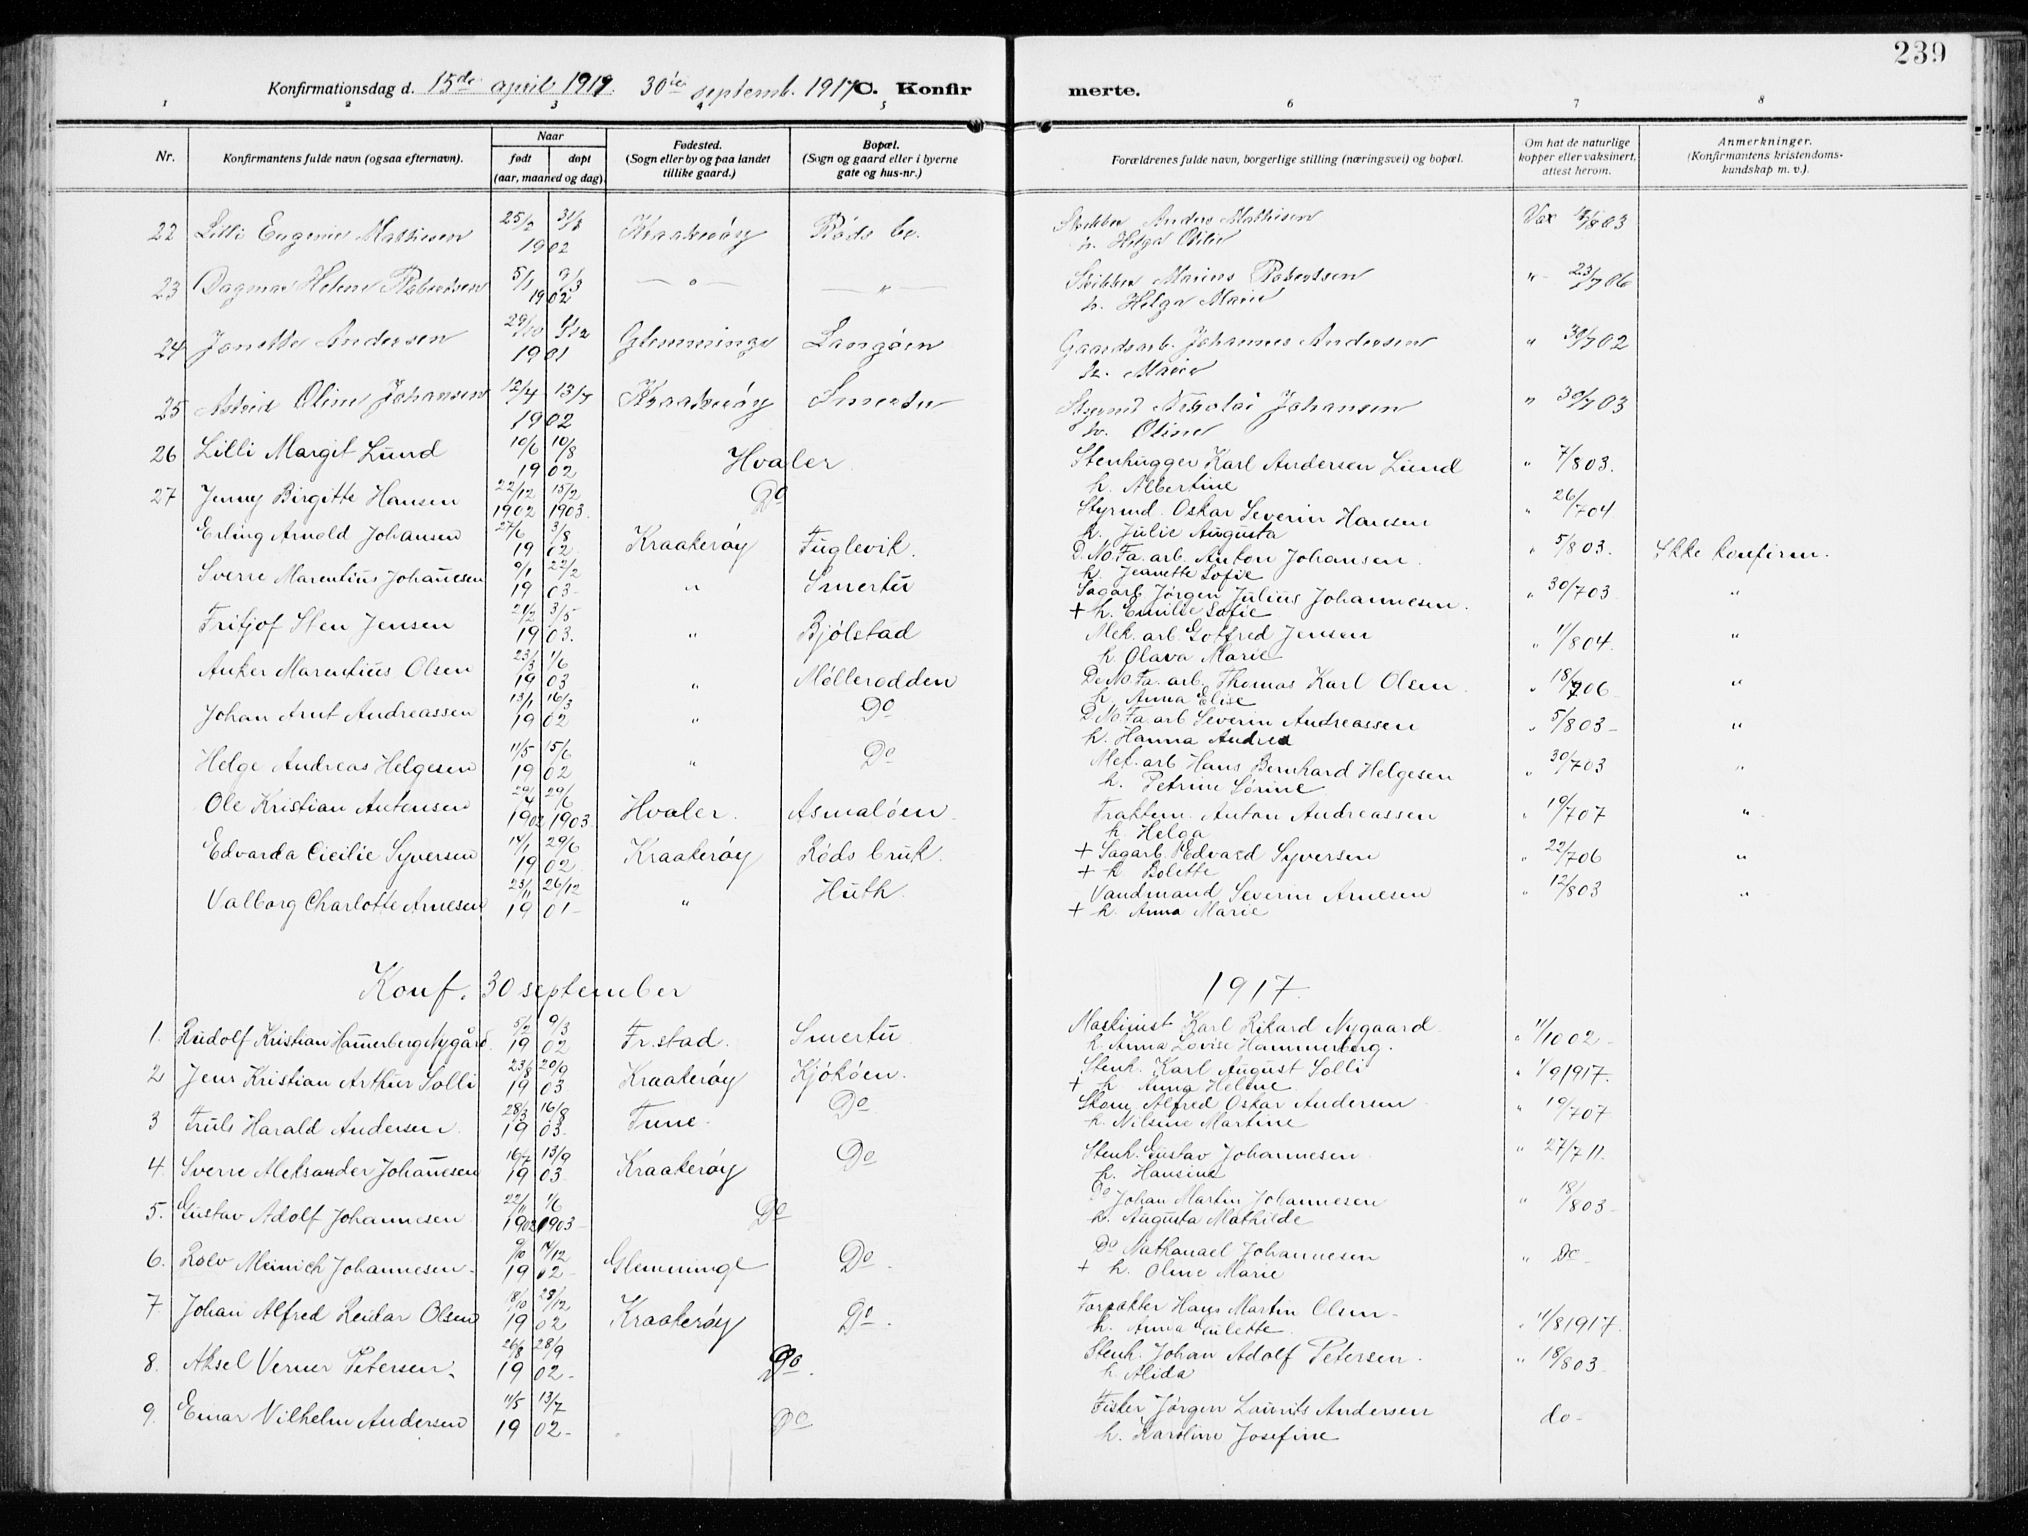 239
Konfirmationsdag d. 15de april 1917. 30te septemb. 1917 C. Konfirmerte.
1 2 3 4 5 6 7 8
Nr. Konfirmantens fulde navn (ogsaa efternavn). Naar født døpt (aar, maaned og dag). Fødested. (Sogn eller by og paa landet tillike gaard.) Bopæl. (Sogn og gaard eller i byerne gate og hus-nr.) Forældrenes fulde navn, borgerlige stilling (næringsvei) og bopæl. Om hat de naturlige kopper eller vaksinert, attest herom. Anmerkninger. (Konfirmantens kristendoms-kundskap m. v.).
22 Lilli Eugenie Mathisen 25/2 31/3 1902 Kraakerøy Røds br. Skibber Anders Mathisen Vax
h. Helga Otilie
23 Dagmar Helene Robertsen 5/1 9/3 1902 — " — — " — Skibber Marius Robertsen " 23/7 06
h. Helga Marie
24 Janette Andersen 29/10 1901 Glemminge Langøen Gaardsarb. Johannes Andersen " 30/7 02
h. Marie
25 Astrid Oline Johansen 12/4 13/7 1902 Kraakerøy Smertu Styrmd Nikolai Johansen " 30/7 03
h. Oline
26 Lilli Margit Lund 10/6 10/8 1902 Hvaler Stenhugger Karl Andersen Lund " 7/8 03.
h. Albertine
27 Jenny Birgitte Hansen 22/12 1902 15/2 1903. Do Styrmd. Oskar Severin Hansen " 26/7 04
h. Julie Augusta
Erling Arnold Johansen 27/6 3/8 1902 Kraakerøy Fuglevik. D. No. Fa. arb. Anton Johansen. " 5/8 03. Ikke konfirm.
h. Jeanette Sofie
Sverre Marentius Johannesen 9/1 22/2 1903- " Smertu Sagarb. Jørgen Julius Johannesen. " 30/7 03 "
+ h. Emilie Sofie
Fritjof Sten Jensen 21/2 3/5 1903. " Bjølstad Mek. arb. Gotfred Jensen " 1/8 04. "
h. Olava Marie
Anker Marentius Olsen 23/3 1/6 1903 " Møllerodden De No. Fa. arb. Thomas Karl Olsen. " 18/7 06 "
h. Anna Elise
Johan Arnt Andreassen 13/1 16/3 1902 " Do D. No. Fa. arb. Severin Andreassen " 5/8 03- "
h. Hanna Andrea
Helge Andreas Helgesen 11/5 15/6 1902 " Do Mek. arb. Hans Bernhard Helgesen " 30/7 03 "
h. Petrine Sørine
Ole Kristian Antensen 1902 29/6 1903. Hvaler. Asmaløen. Anton Andreassen " 19/7 07 "
h. Helga
Edvarda Cicilie Syversen 14/1 29/6 1902 Kraakerøy Røds bruk. + Sagarb. Edvard Syversen " 22/7 06 "
+ h Bolette
Valborg Charlotte Arnesen 23/11 26/12 1901- " Huth. Vandmand Severin Arnesen " 12/8 03 "
+ h. Anna Marie
Konf. 30 september 1917.
1. Rudolf Kristian Hammerberg Nygård. 5/2 9/3 1902 Fr.stad. Smertu Maskinist Karl Rikard Nygaard. " 11/10 02-
h. Anna Lovise Hammerberg.
2 Jens Kristian Arthur Solli 23/8 20/9 1903 Kraakerøy Kjøkøen. Stenh. Karl August Solli " 1/9 1917.
+ h. Anna Helene.
3 Truls Harald Andersen. 28/3 16/8 1903. Tune. Do Skom. Alfred Oskar Andersen. " 19/7 07.
h. Nilsine Martine
4. Sverre Aleksander Johannesen 16/7 13/9 1903. Kraakerøy Do Stenh. Gustav Johannesen. " 27/7 11.
h. Hansine
5. Gustav Adolf Johannesen 22/11 1902 1/6 1903- Do Do Johan Martin Johannesen " 18/8 03-
h. Augusta Mathilde
6. Rolv Meinich Johannesen. 9/10 1902- Glemminge Do. Do Nathanael Johannesen " Do-
+ h. Oline Marie
7 Johan Alfred Reidar Olsen 8/10 28/12 1902 Kraakerøy Do. Forpakter Hans Martin Olsen- " 11/8 1917.
h. Anna Julette.
8. Aksel Verner Petersen. 26/8 28/9 1902- Do. Stenh. Johan Adolf Petersen. " 18/8 03-
h. Alida
9. Einar Vilhelm Andersen 11/5 13/7 1902- Do Fisker Jørgen Laurits Andersen do-
h. Karoline Josefine